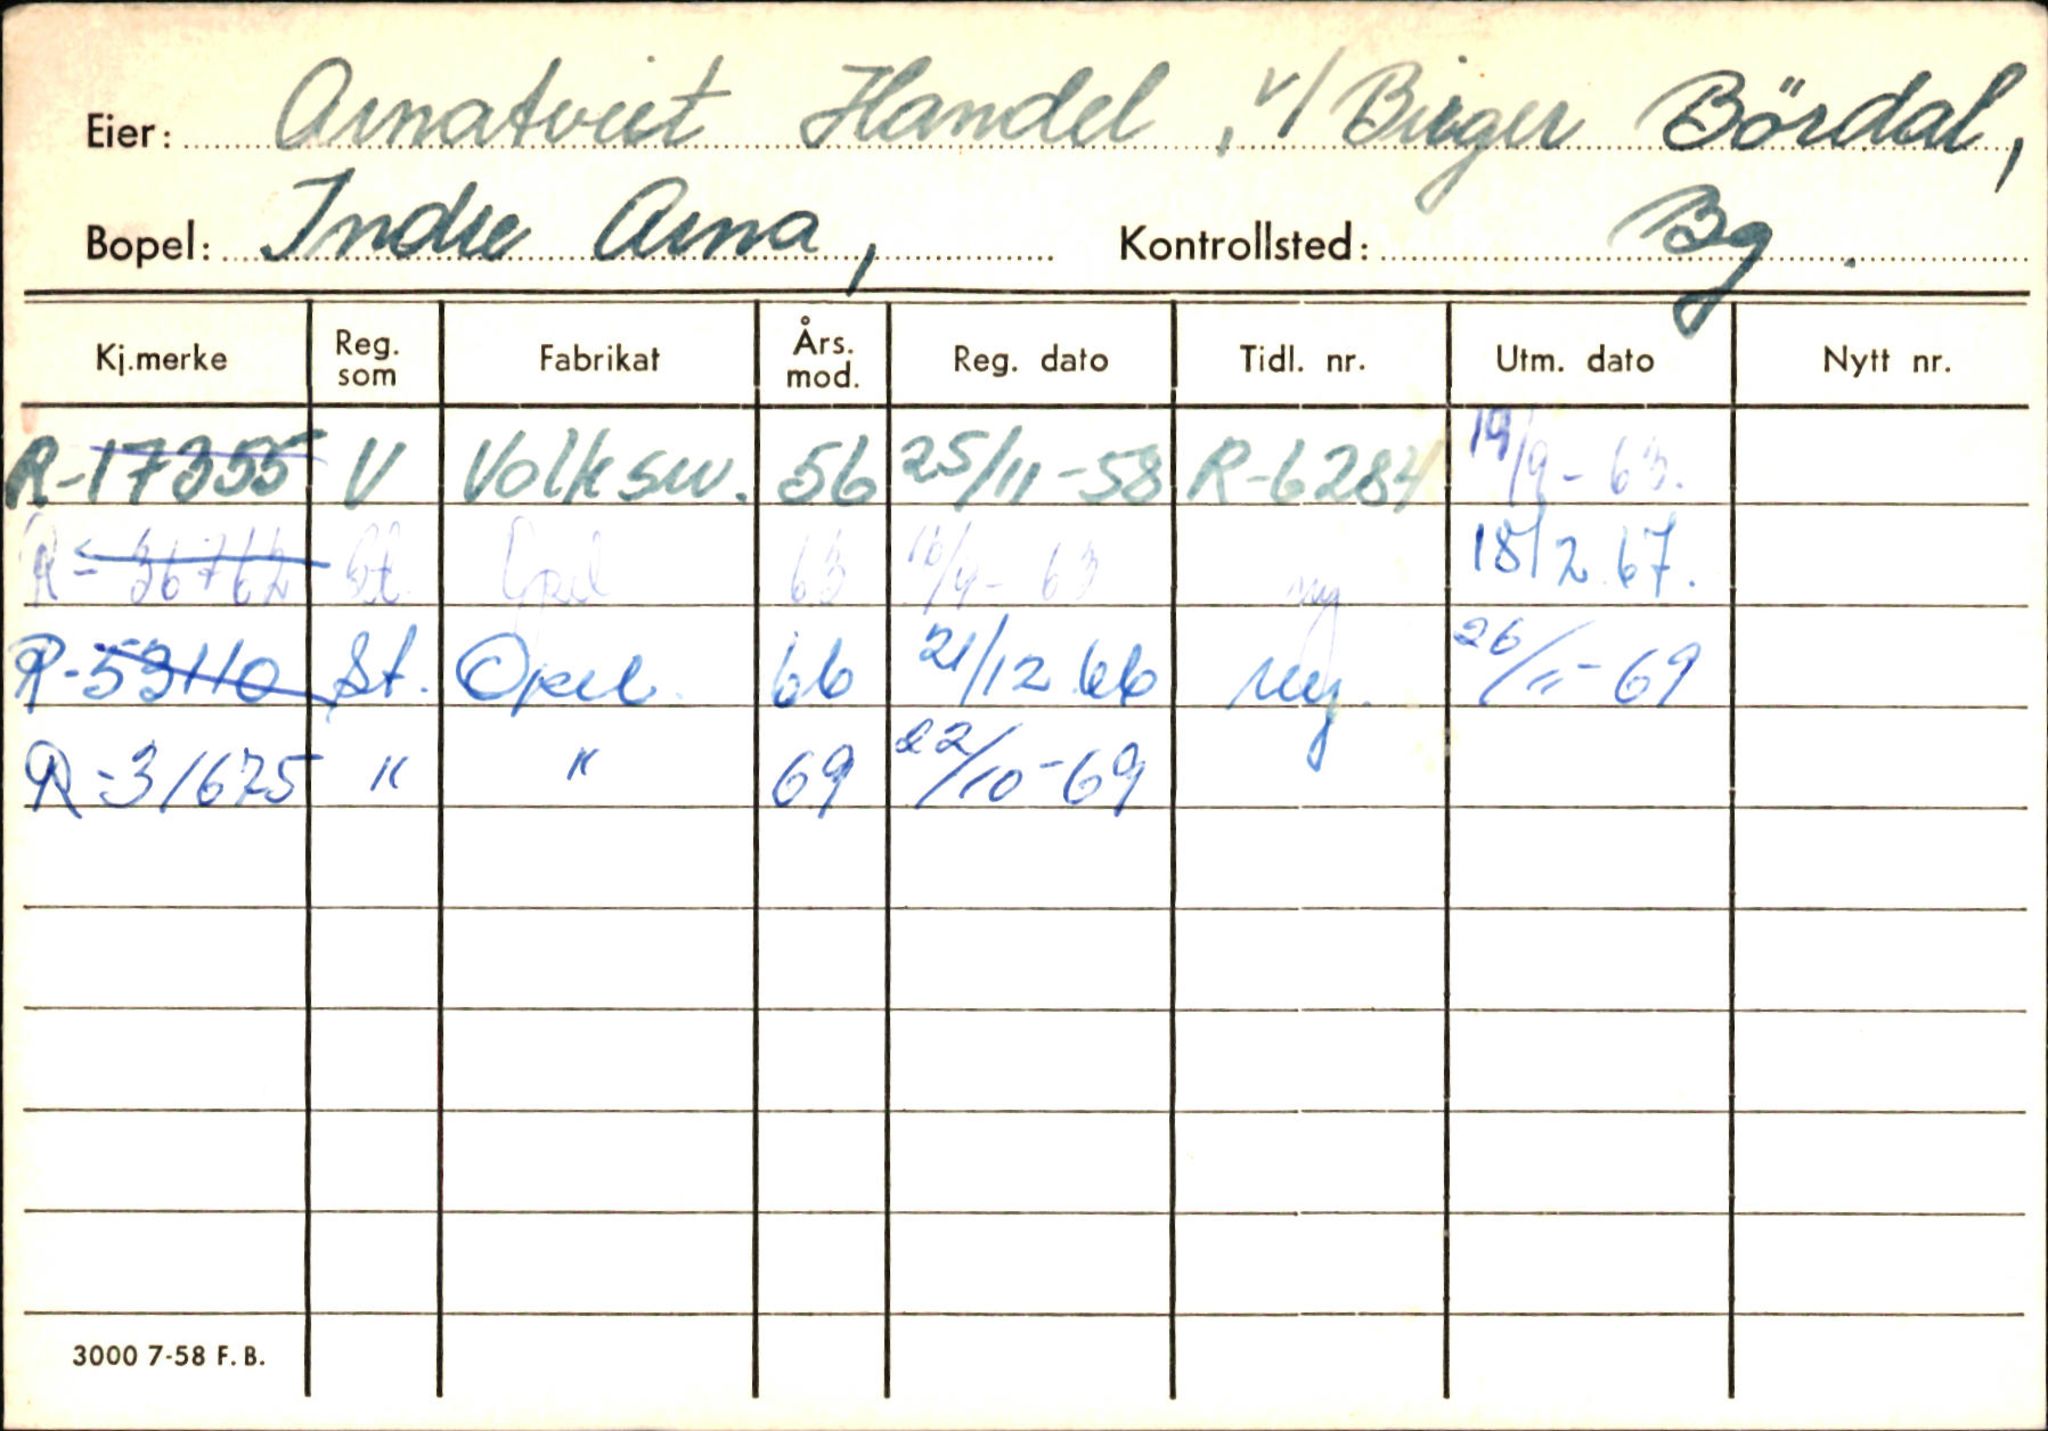 Eier: Arnatveit Handel, v/ Birger Bördal,
Bopel: Indre Arna, Kontrollsted: Bg.
Kj.merke Reg. som Fabrikat Års. mod. Reg. dato Tidl. nr. Utm. dato Nytt nr.
R-17355 V Volksw. 56 25/11-58 R-6284 19/9-63.
R-36762 St. Opel 63 /9-63 ny 18/2 67.
R-53110 St. Opel. 66 21/12 66 ny. 26/11-69
R-31675 " " 69 22/10-69
3000 7-58 F. B.